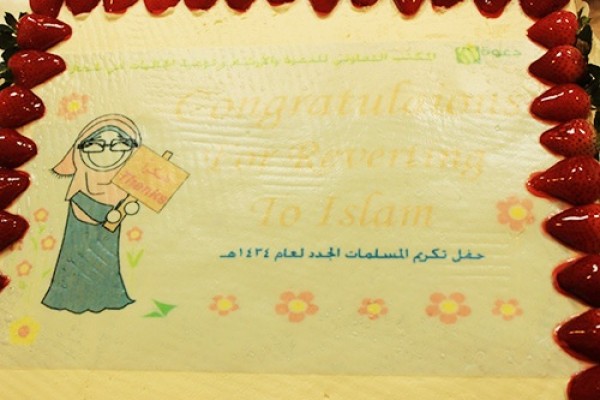 دعوة
المكتب التعاوني للدعوة والإرشاد وتوعية الجاليات في
Congratulations
For Reverting
To Islam
شكرا
Thanks
حفل تكريم المسلمات الجدد لعام ١٤٣٤هـ